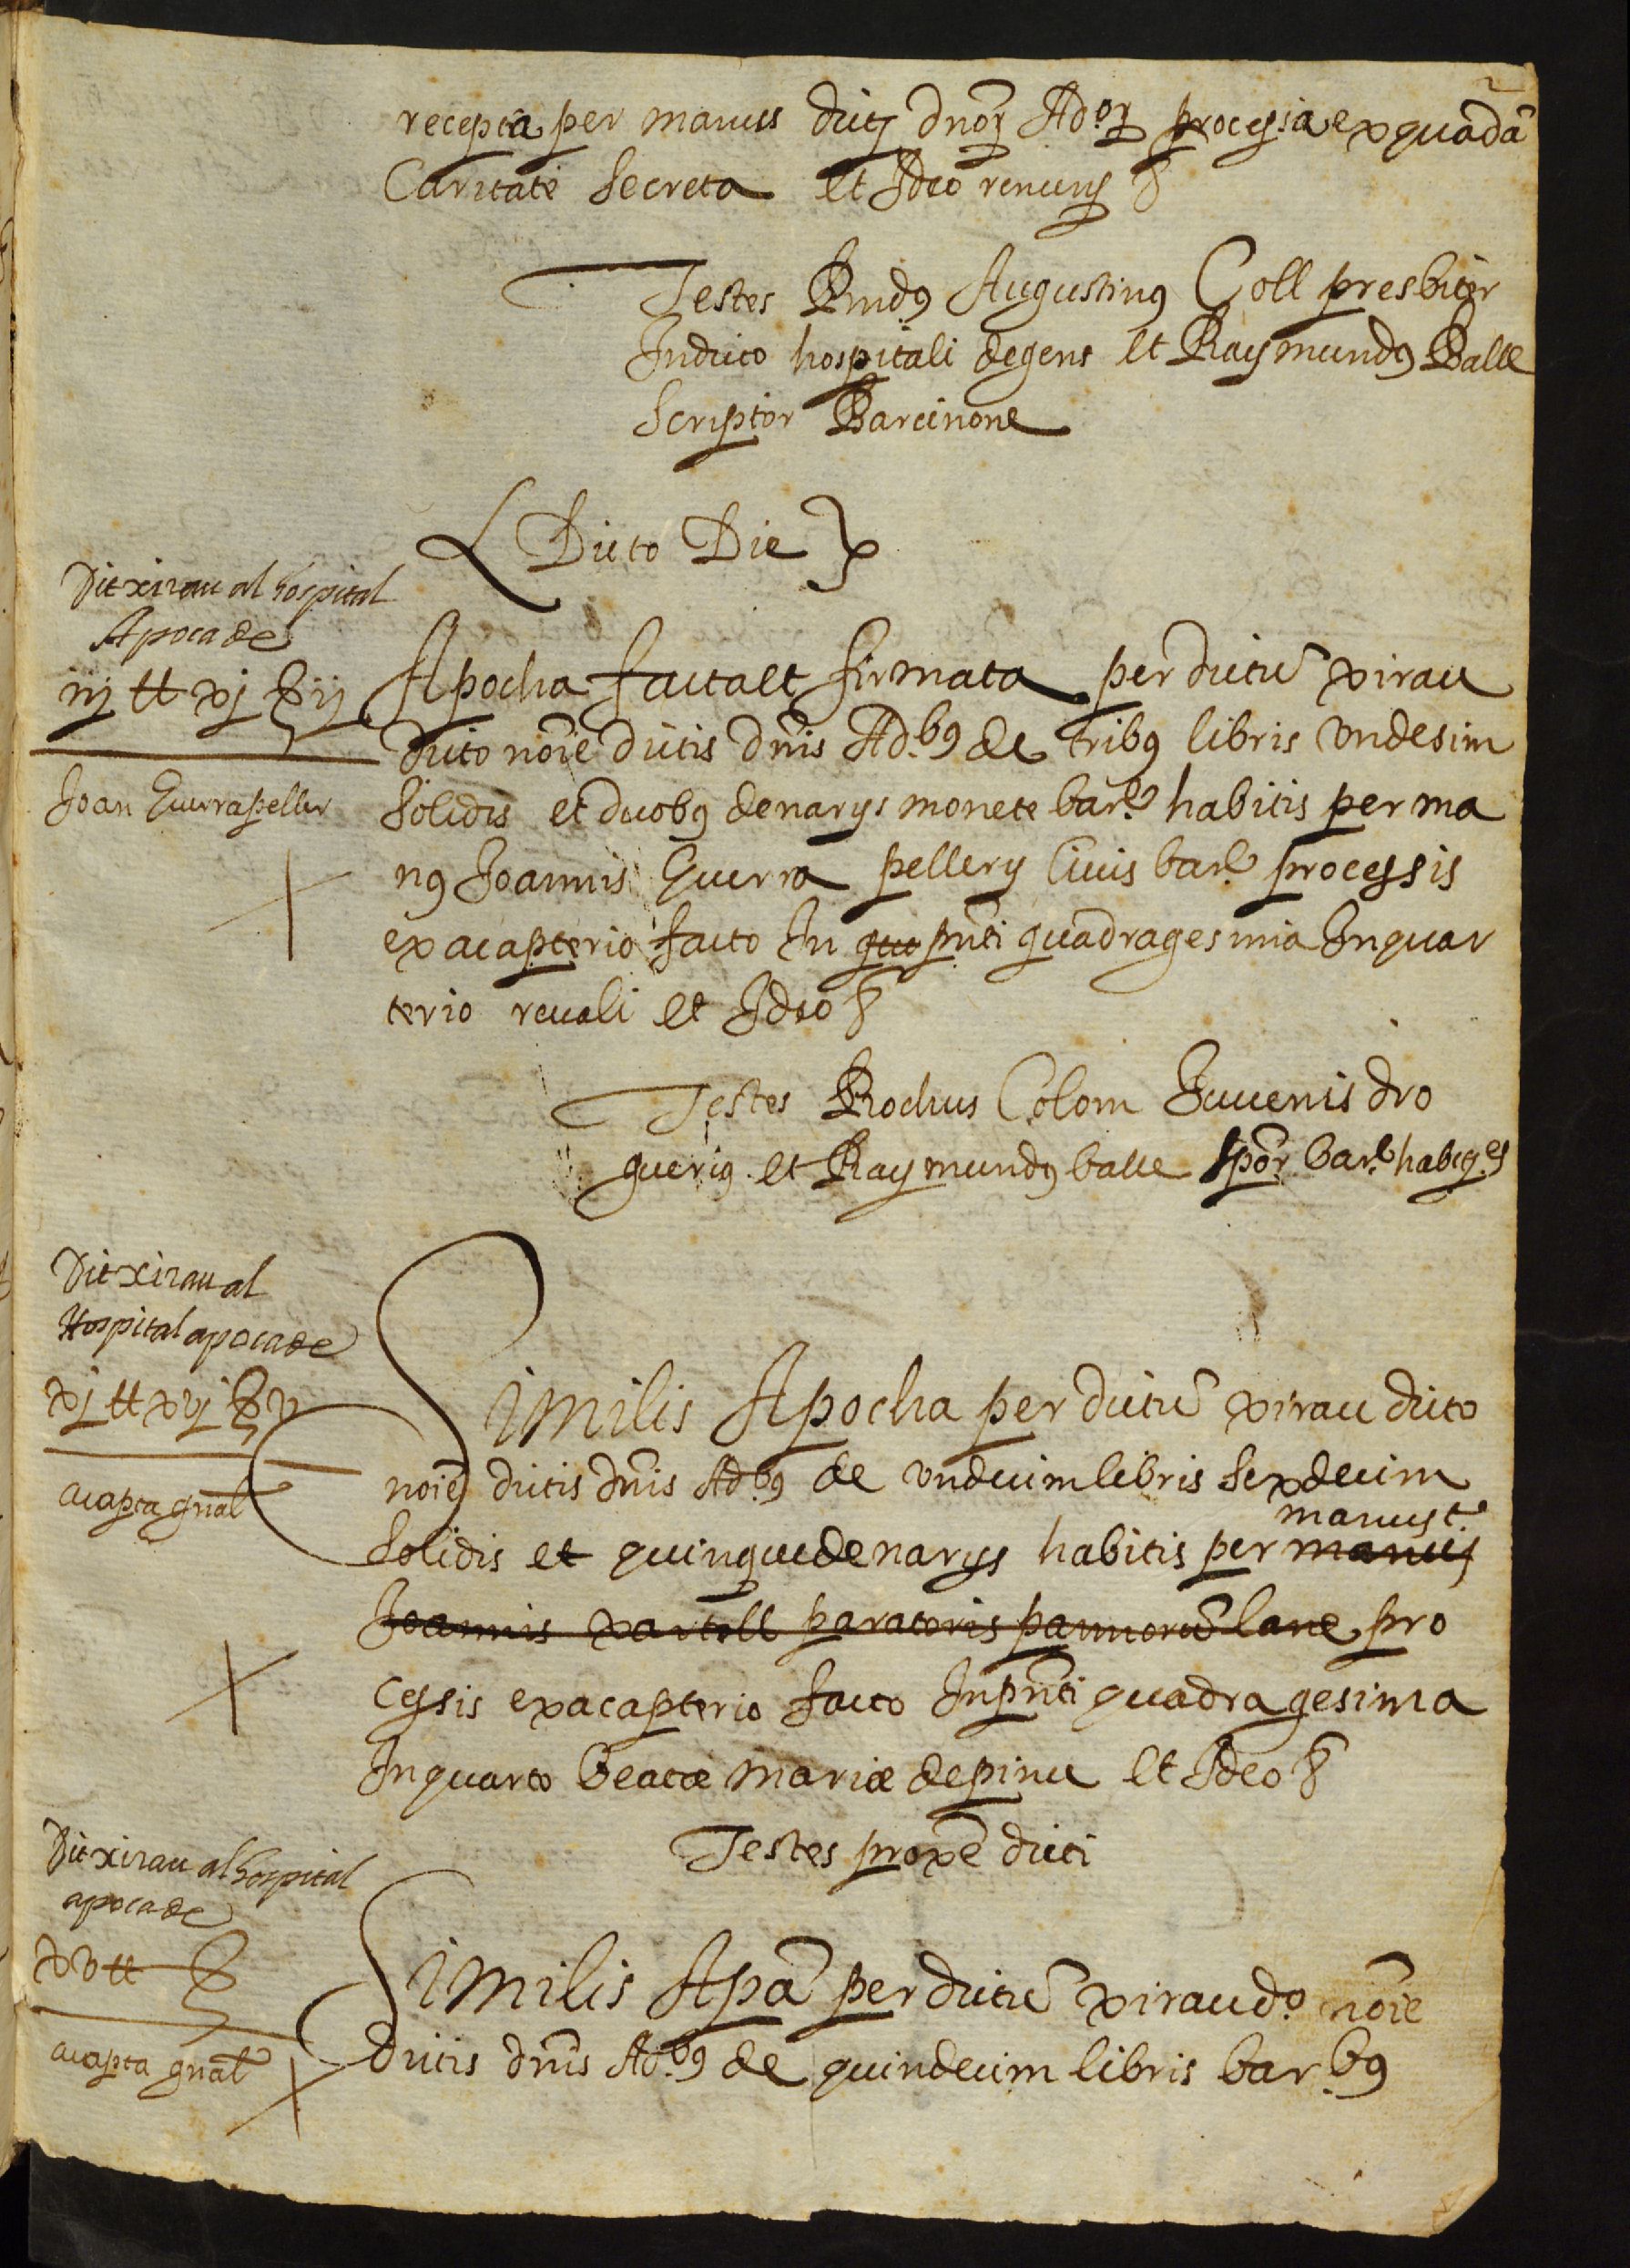 2
recepta per manus dictj dnoȝ Ad.oȝ processia ex quada
Caritate secreta et Ideo renuns &
Testes Rndꝰ Augustinꝰ Coll presbiter
Indicto hospitali degens et Raymundꝰ Balle
Scriptor Barcinone
Dicto Die
Dit xirau al hospital
Apoca de
iij ℔ xj ß ij
Joan Guerra peller
Apocha facta et firmata per dictu xirau
dicto noie dictis dnis Ad.bꝰ de tribꝰ libris undesim
Solidis et duobꝰ denarys monete bar.e habitis per ma
nꝰ Joannis Guerra pellery Ciuis bar.e processis
ex acapterio facto In quo pnti quadragesima In quar
terio reuali et Ideo &
Testes Rochus Colom Juuenis dro
gueriꝰ et Raymundꝰ balle spor bar.e habit.es
Dit xirau al
Hospital apoca de
xj ℔ xvj ß v
acapta gnal
Similis Apocha per dictu xirau dicto
noie dictis dnis Ad.bꝰ de undecim libris sexdecim
manus t.
Solidis et quinque denarys habitis per manus
Joannis xartell paratoris pannoru lane pro
cessis ex acapterio facto In pnti quadragesima
In quarto beatæ mariæ de pinu et Ideo &
Testes proxe dicti
Dit xirau al hospital
apoca de
xv ℔ ß
acapta gnal
Similis Apa per dictu xirau d.o noie
dictis dnis Ad.bꝰ de quindecim libris bar.bꝰ